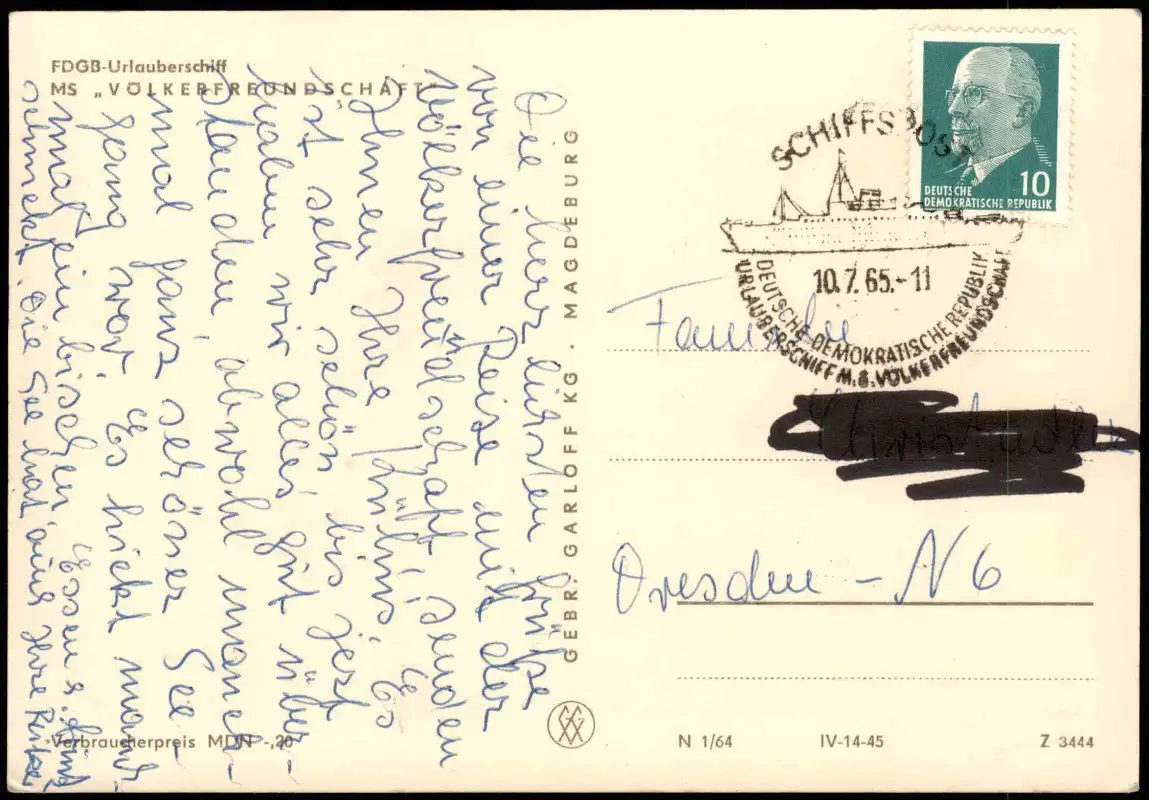 FDGB-Urlauberschiff
MS „VÖLKERFREUNDSCHAFT"
Die herzlichsten Grüße
von einer Reise mit der
Völkerfreundschaft, senden
Ihnen Ihre Kühns. Es
ist sehr schön bis jezt
haben wir alles gut über-
standen, abwohl manch-
mal ganz schöner See-
gang war. Es hickt manch-
mal ein bischen. Essen s.
schmekt. Die See hat uns Ihre
GEBR. GARLOFF KG. MAGDEBURG
Verbraucherpreis MDN -,20
SCHIFFSPOST
DEUTSCHE
DEMOKRATISCHE REPUBLIK
10
10.7.65.-11
DEUTSCHE DEMOKRATISCHE REPUBLIK
URLAUBERSCHIFF M.S. VÖLKERFREUNDSCHAFT
Familie
Dresden - N 6
N 1/64
IV-14-45
Z 3444